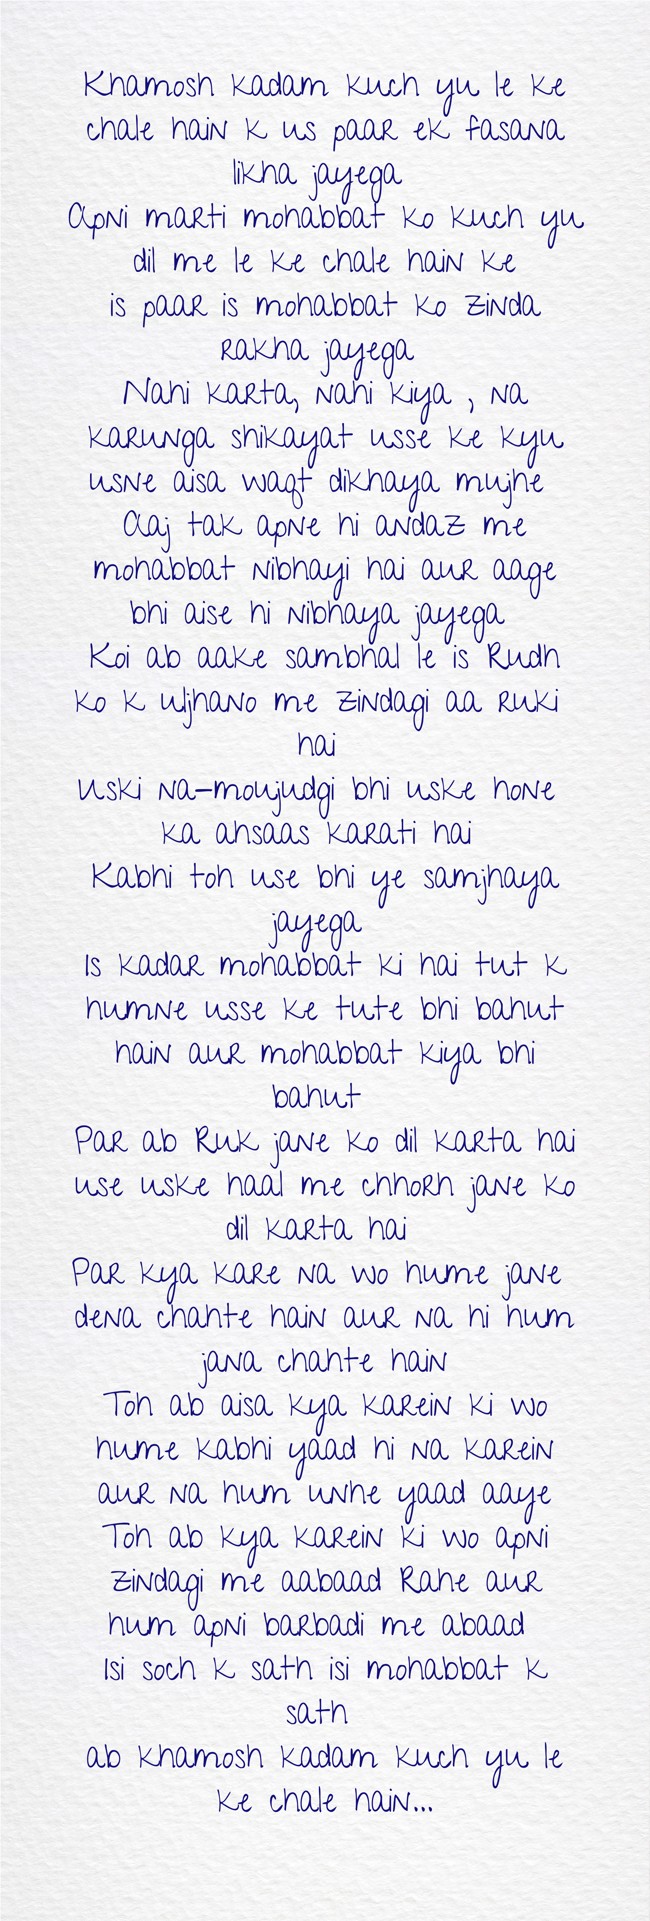 Khamosh kadam kuch yu le ke
chale hain k us paar ek fasana
likha jayega
Apni marti mohabbat ko kuch yu
dil me le ke chale hain ke
is paar is mohabbat ko zinda
rakha jayega
Nahi karta, nahi kiya , na
karunga shikayat usse ke kyu
usne aisa waqt dikhaya mujhe
Aaj tak apne hi andaz me
mohabbat nibhayi hai aur aage
bhi aise hi nibhaya jayega
Koi ab aake sambhal le is Rudh
ko k uljhano me zindagi aa ruki
hai
Uski na-moujudgi bhi uske hone
ka ahsaas karati hai
Kabhi toh use bhi ye samjhaya
jayega
Is kadar mohabbat ki hai tut k
humne usse ke tute bhi bahut
hain aur mohabbat kiya bhi
bahut
Par ab Ruk jane ko dil karta hai
use uske haal me chhorh jane ko
dil karta hai
Par kya kare na wo hume jane
dena chahte hain aur na hi hum
jana chahte hain
Toh ab aisa kya karein ki wo
hume kabhi yaad hi na karein
aur na hum unhe yaad aaye
Toh ab kya karein ki wo apni
zindagi me aabaad Rahe aur
hum apni barbadi me abaad
Isi soch k sath isi mohabbat k
sath
ab khamosh kadam kuch yu le
ke chale hain...